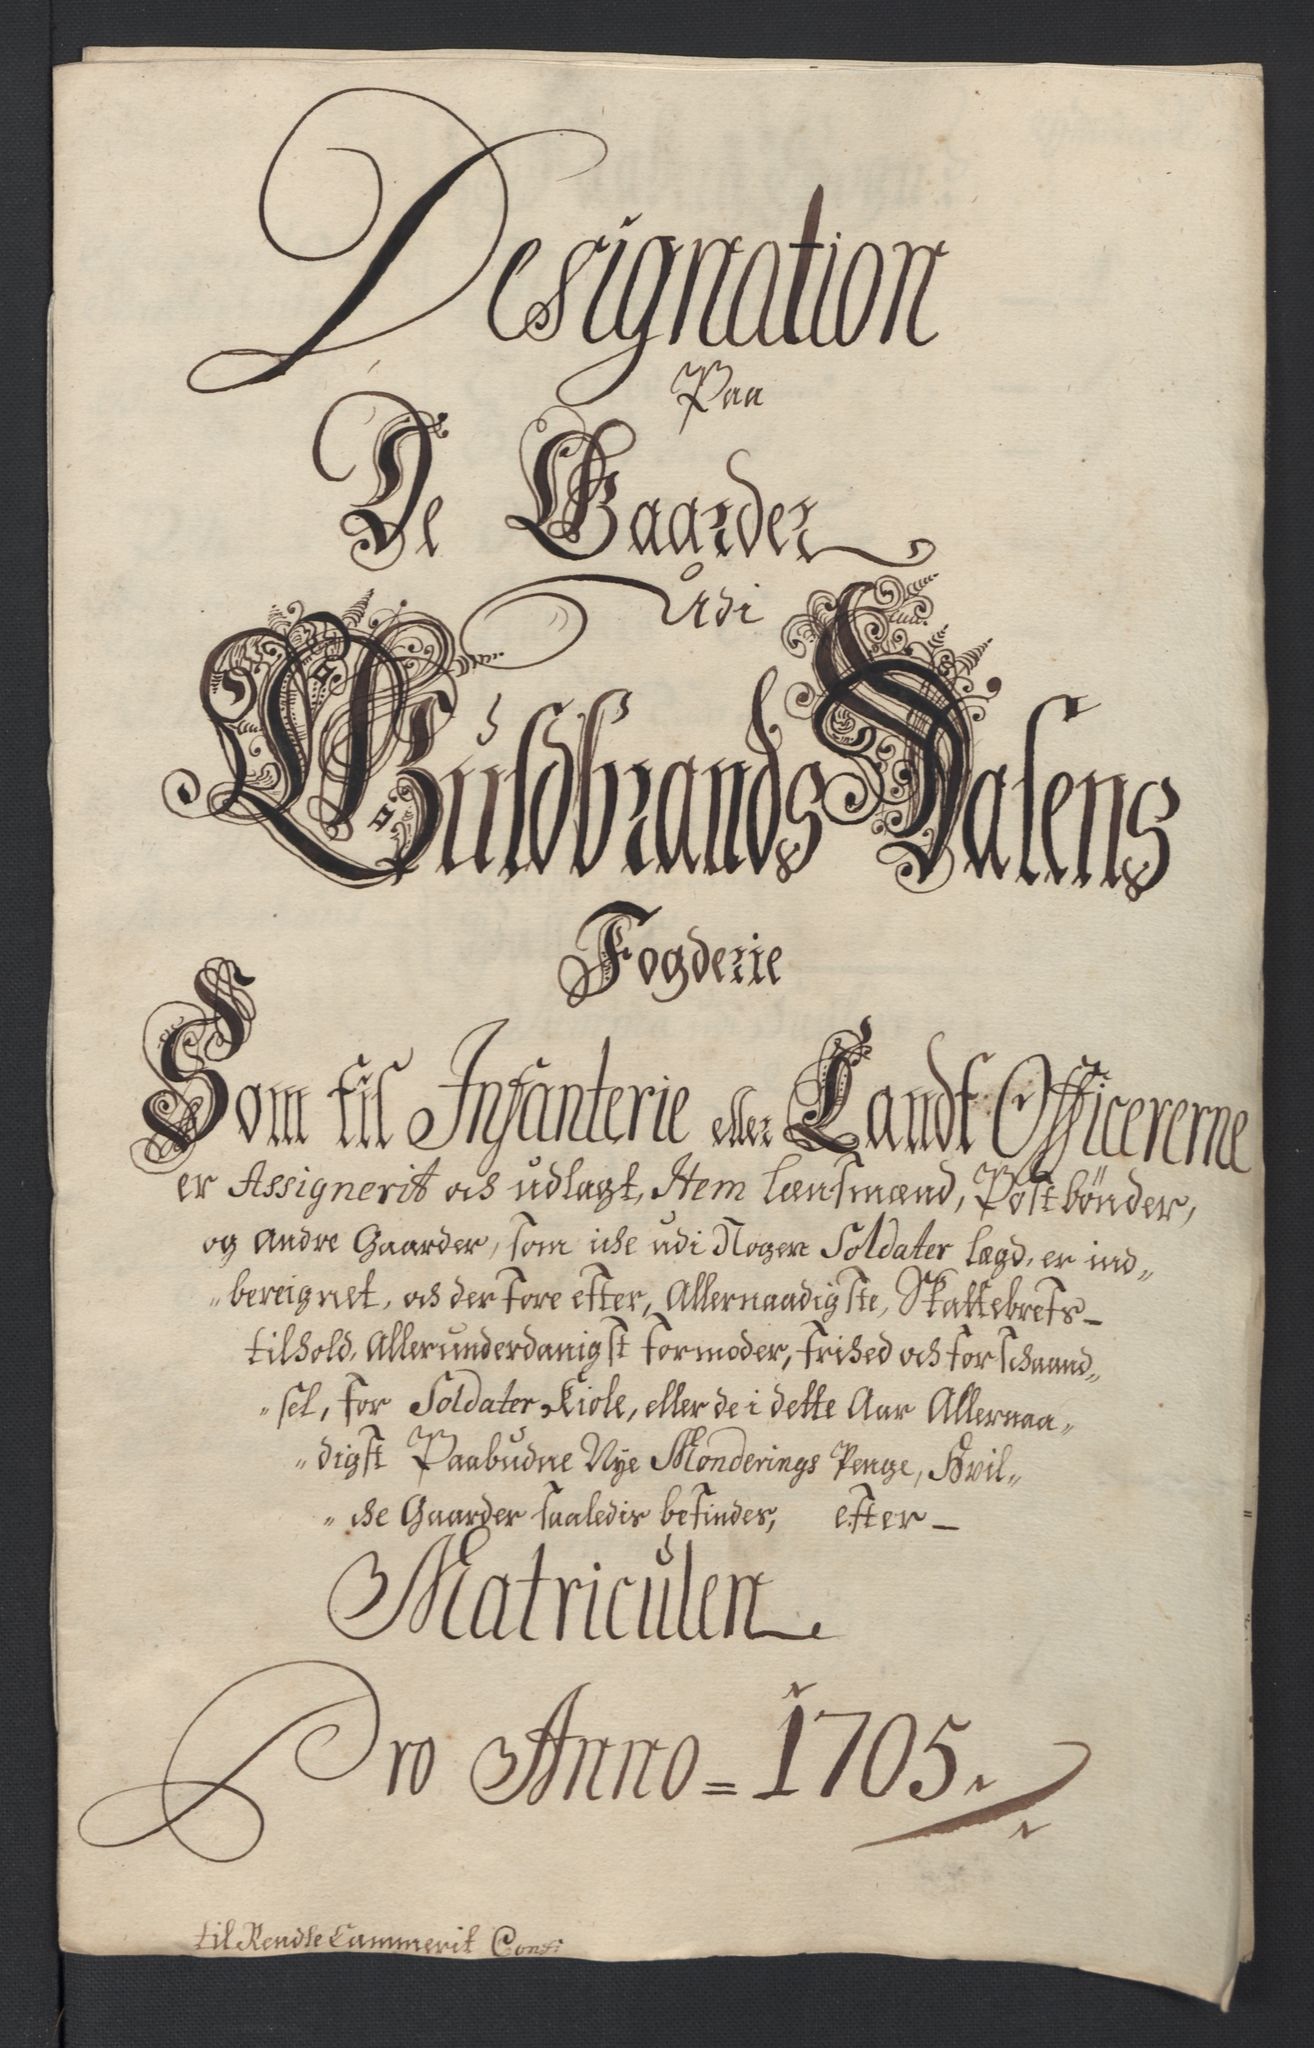 Designation
Paa
De Gaarder
Udi
Guldbrands Dalens
Fogderie
Som til Infanterie eller Landt Officererne
er Assignerit och udlagt, Item Lænsmænd, Postbønder,
og andre Gaarder, som iche udi Nogen Soldater lægd, er ind„
„bereignet, och derfore efter, Allernaadigste, Skattebrefs_
tilhold, Allerunderdanigst formoder, frihed och forschaand„
„sel, for Soldater Kiole, eller de i dette Aar Allernaa„
„digst Paabudne Nye Monderings Penge, Hvil„
„che Gaarder saaledis befindes, efter_
Matriculen
Pro Anno = 1705.
til Rendte Cammerit